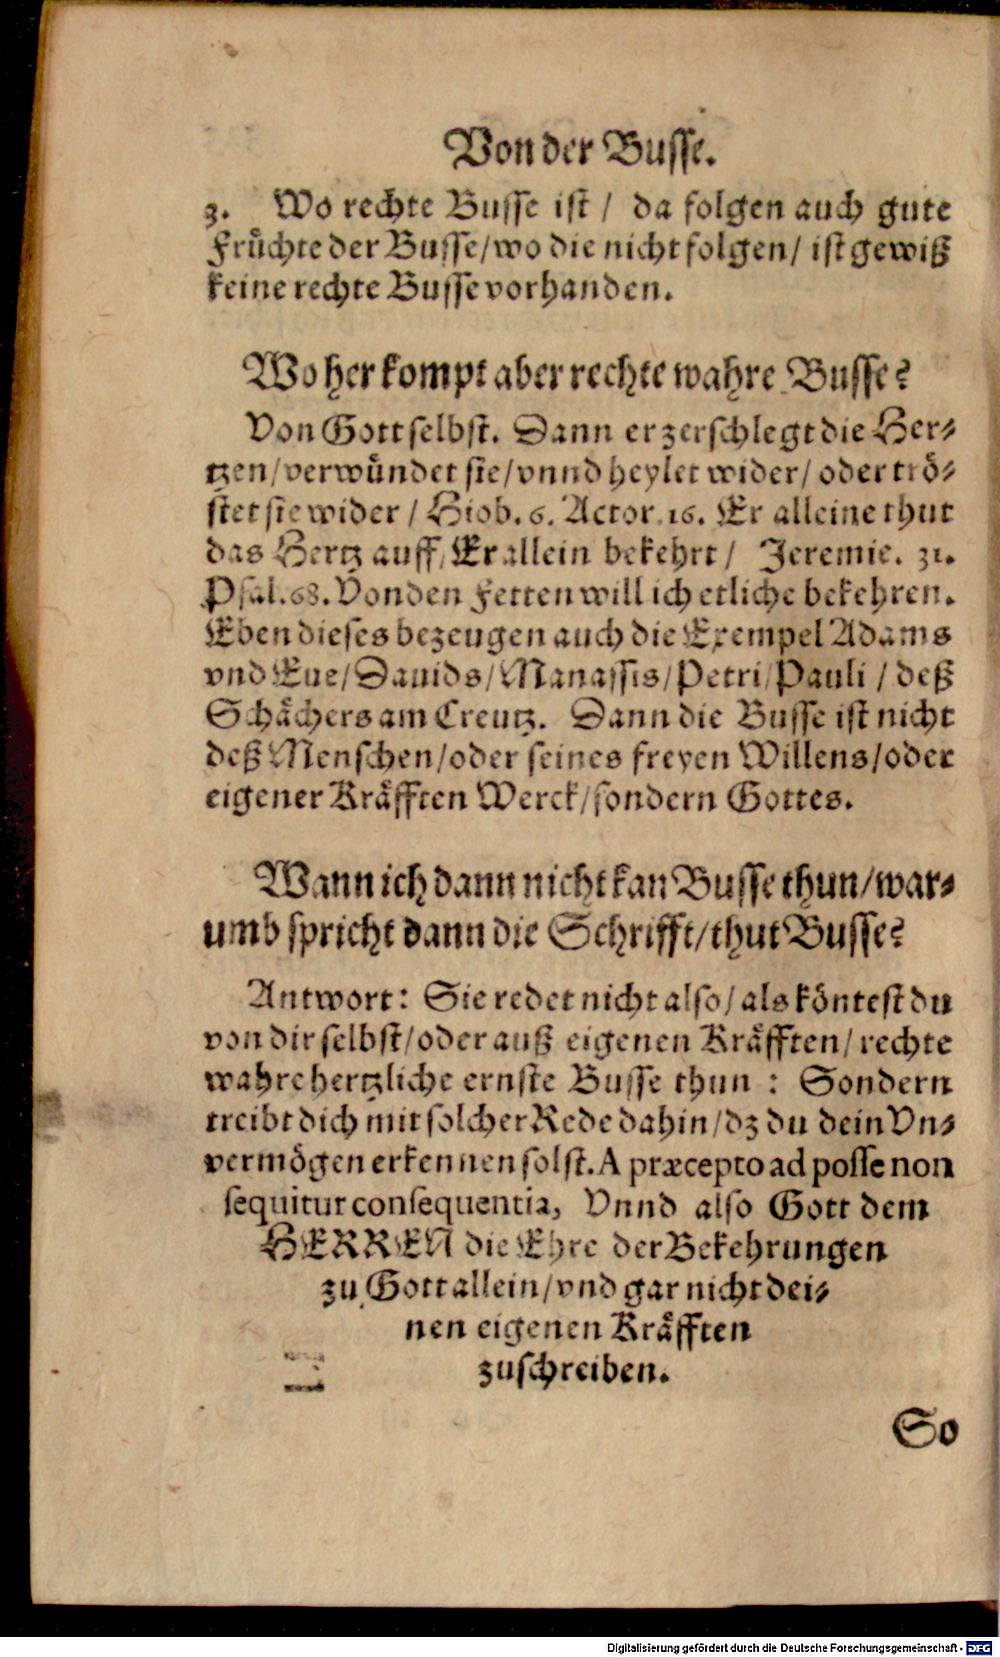 Von der Busse.
3. Wo rechte Busse ist / da folgen auch gute
Früchte der Busse/wo die nicht folgen/ ist gewiß
keine rechte Busse vorhanden.
Woher kompt aber rechte wahre Busse?
Von Gott selbst. Dann er zerschlegt die Her-
tzen/verwündet sie/vnnd heylet wider/ oder trö-
stet sie wider / Hiob. 6. Actor. 16. Er alleine thut
das Hertz auff/Er allein bekehrt / Jeremie. 31.
Psal. 68. Von den Fetten will ich etliche bekehren.
Eben dieses bezeugen auch die Exempel Adams
vnd Eue/Dauids/Manassis/Petri/Pauli / deß
Schächers am Creutz. Dann die Busse ist nicht
deß Menschen/oder seines freyen Willens/oder
eigener Kräfften Werck/sondern Gottes.
Wann ich dann nicht kan Busse thun/war-
umb spricht dann die Schrifft/thut Busse?
Antwort: Sie redet nicht also/ als köntest du
von dir selbst/oder auß eigenen Kräfften/ rechte
wahre hertzliche ernste Busse thun : Sondern
treibt dich mit solcher Rede dahin/dz du dein Vn-
vermögen erkennen solst. A præcepto ad posse non
sequitur consequentia, Vnnd also Gott dem
HERREN die Ehre der Bekehrungen
zu Gott allein/vnd gar nicht dei-
nen eigenen Kräfften
zuschreiben.
So
Digitalisierung gefördert durch die Deutsche Forschungsgemeinschaft - DFG